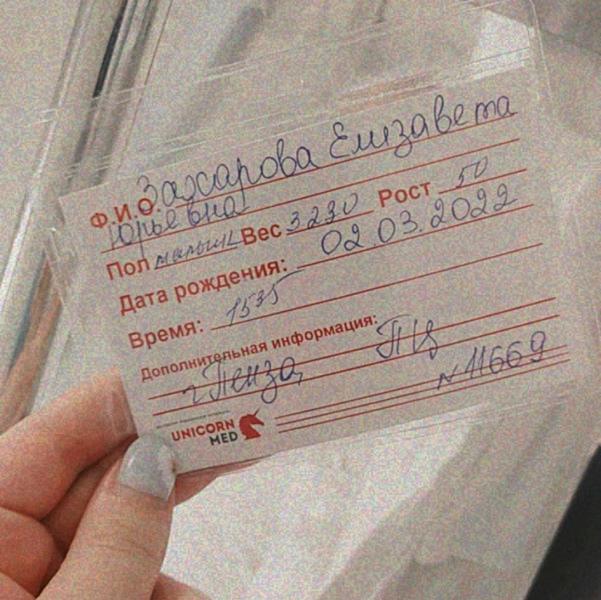 Ф.И.О. Захарова Елизавета
Юрьевна
Пол мальчик Вес 3230 Рост 50
Дата рождения: 02.03.2022
Время: 1535
Дополнительная информация:
г Пенза, ПЦ
N 11669
UNICORN
MED